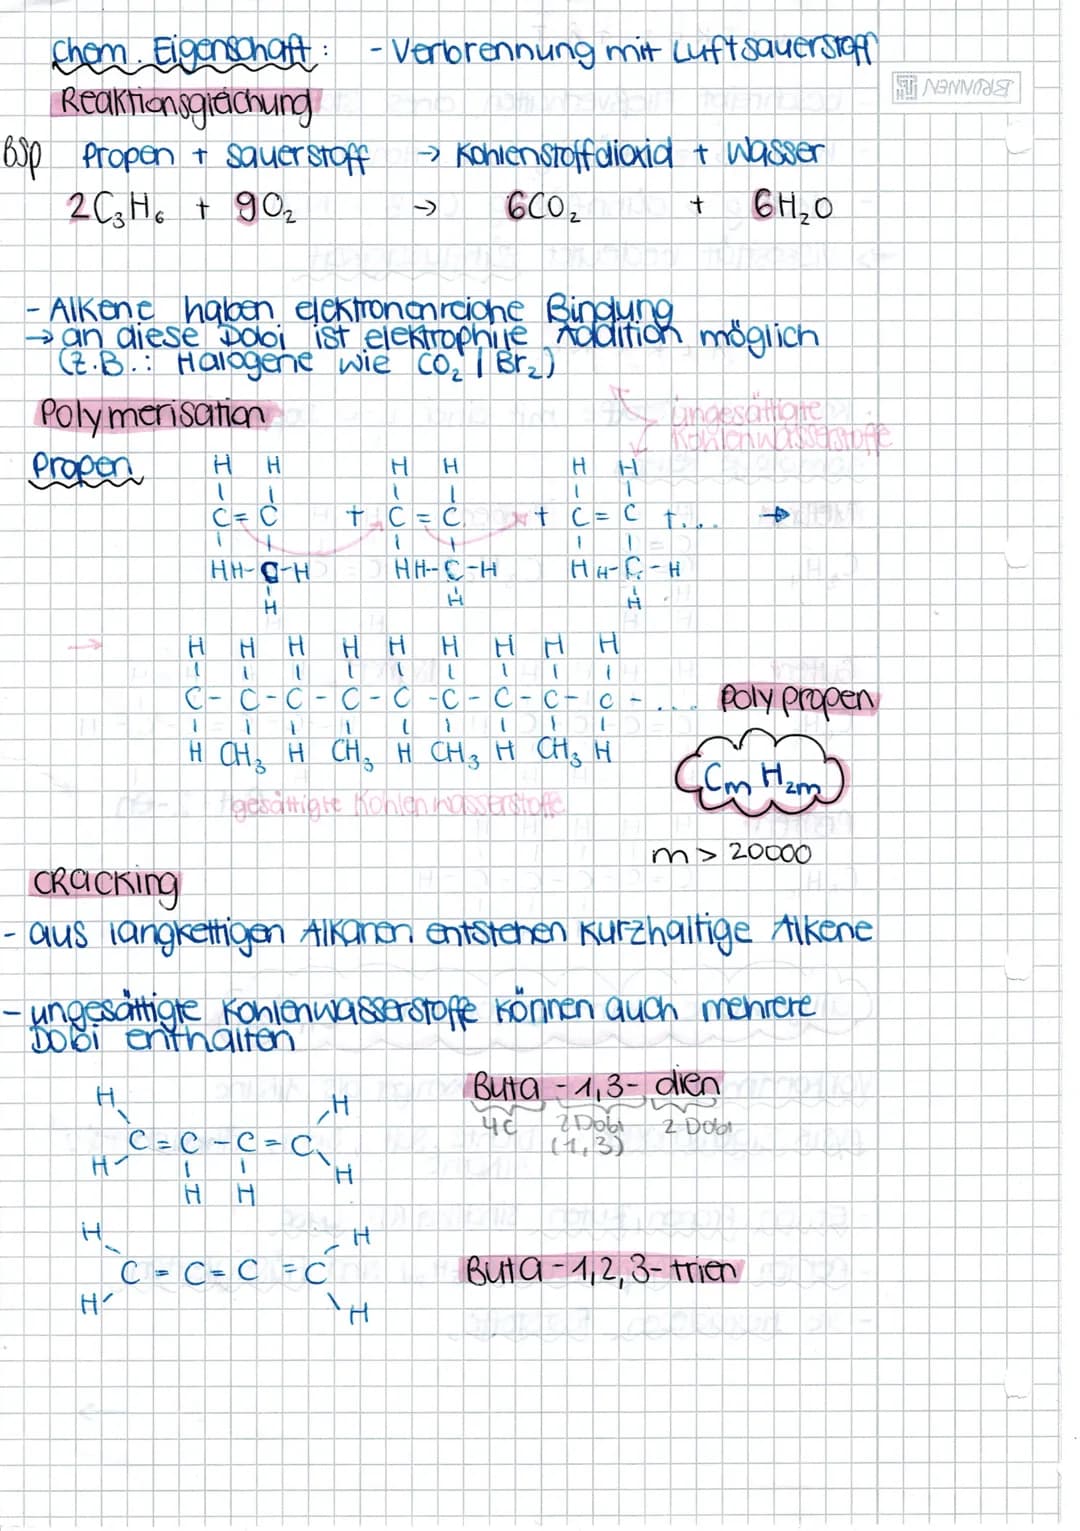 Chem. Eigenschaft: - Verbrennung mit Luftsauerstoff
BRUNNEN
Reaktionsgleichung
Bsp Propen + Sauerstoff → Kohlenstoffdioxid + Wasser
2C₃H₆ + 9O₂ → 6CO₂ + 6H₂O
- Alkene haben elektronenreiche Bindung
→ an diese Dobi ist elektrophile Addition möglich
(z.B.: Halogene wie CO₂ / Br₂)
Polymerisation
ungesättigte
Kohlenwasserstoffe
Propen
H H H H H H
C=C + C=C + C=C +... →
HH-C-H HH-C-H HH-C-H
H H H
→ H H H H H H H H H
C-C-C-C-C-C-C-C-C-... Polypropen
H CH₃ H CH₃ H CH₃ H CH₃ H
CmH2m
gesättigte Kohlenwasserstoffe
m > 20000
CRacking
- aus langkettigen Alkanen entstehen kurzhaltige Alkene
- ungesättigte Kohlenwasserstoffe können auch mehrere
Dobi enthalten
Buta-1,3-dien
4C 2 Dobi 2 Dobi
(1,3)
H H
C=C-C=C
H H
H H
H H
C=C=C=C Buta-1,2,3-trien
H H